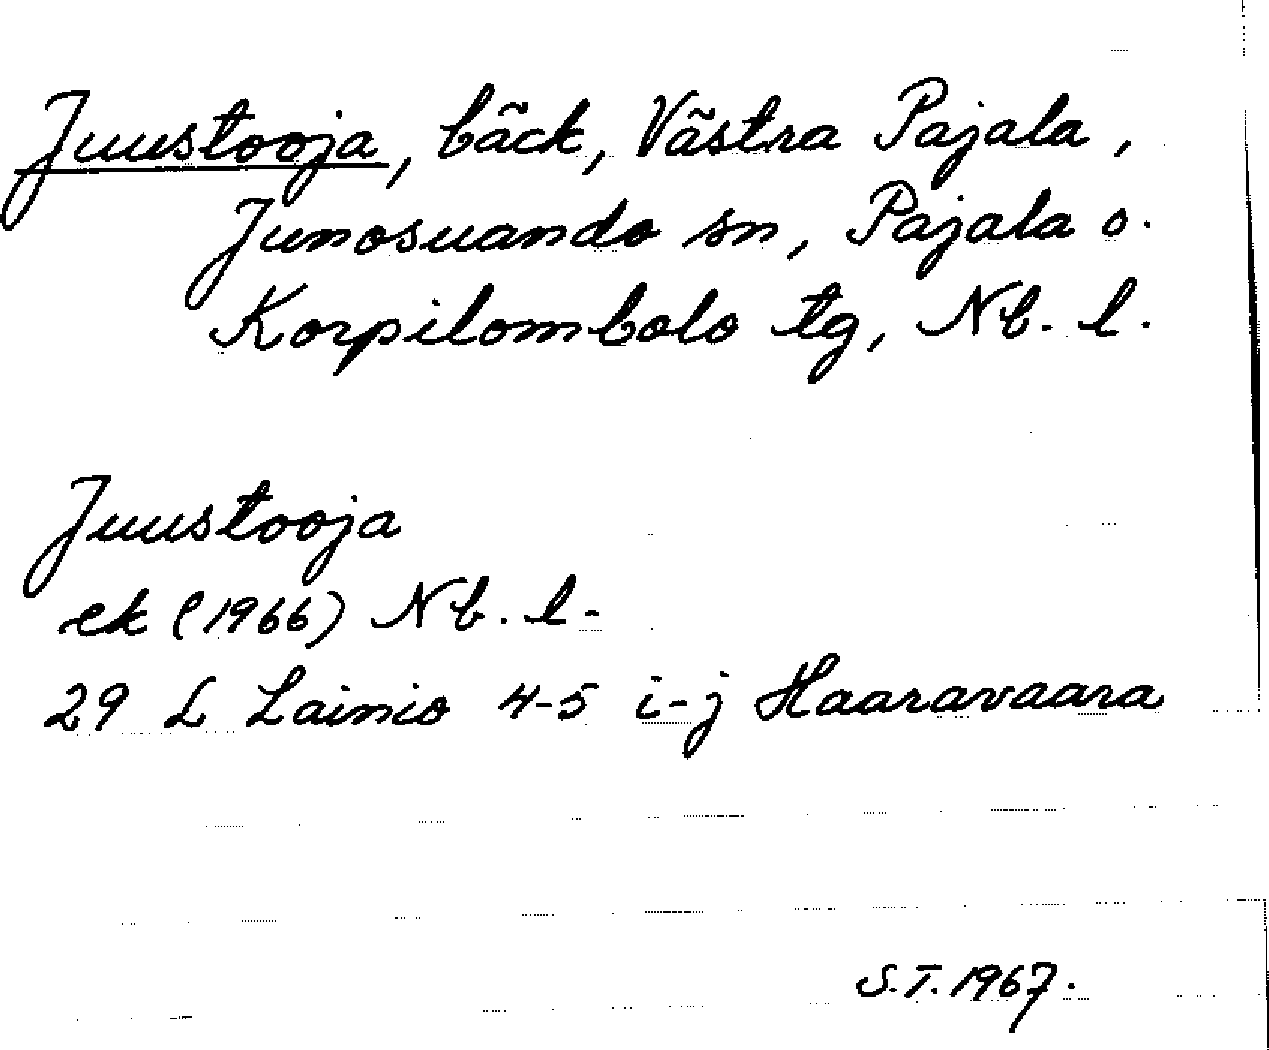 Juustooja, bäck, Västra Pajala,
Junosuando sn, Pajala o.
Korpilombolo tg, Nb. l.
Juustooja
ek (1966) Nb. l.
29 L Lainio 4-5 i-j Haaravaara
S.T. 1967.